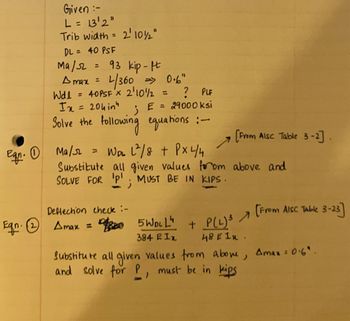 Given :-
L = 13'2"
Trib width = 2'10½"
DL = 40 PSF
Ma/Ω = 93 kip-ft
Δmax = L/360 => 0.6"
Wdl = 40PSF x 2'10½ = ? PLF
Ix = 204 in⁴ ; E = 29000 ksi
Solve the following equations :-
[From AISC Table 3-2].
Eqn. ① Ma/Ω = WDL L²/8 + PxL/4
Substitute all given values from above and
SOLVE FOR 'P' ; MUST BE IN KIPS.
Deflection check :-
[From AISC Table 3-23]
Eqn. ② Δmax = 5WDLL⁴/384 EIx + P(L)³/48 EIx.
Substitute all given values from above, Δmax = 0.6".
and solve for P, must be in kips